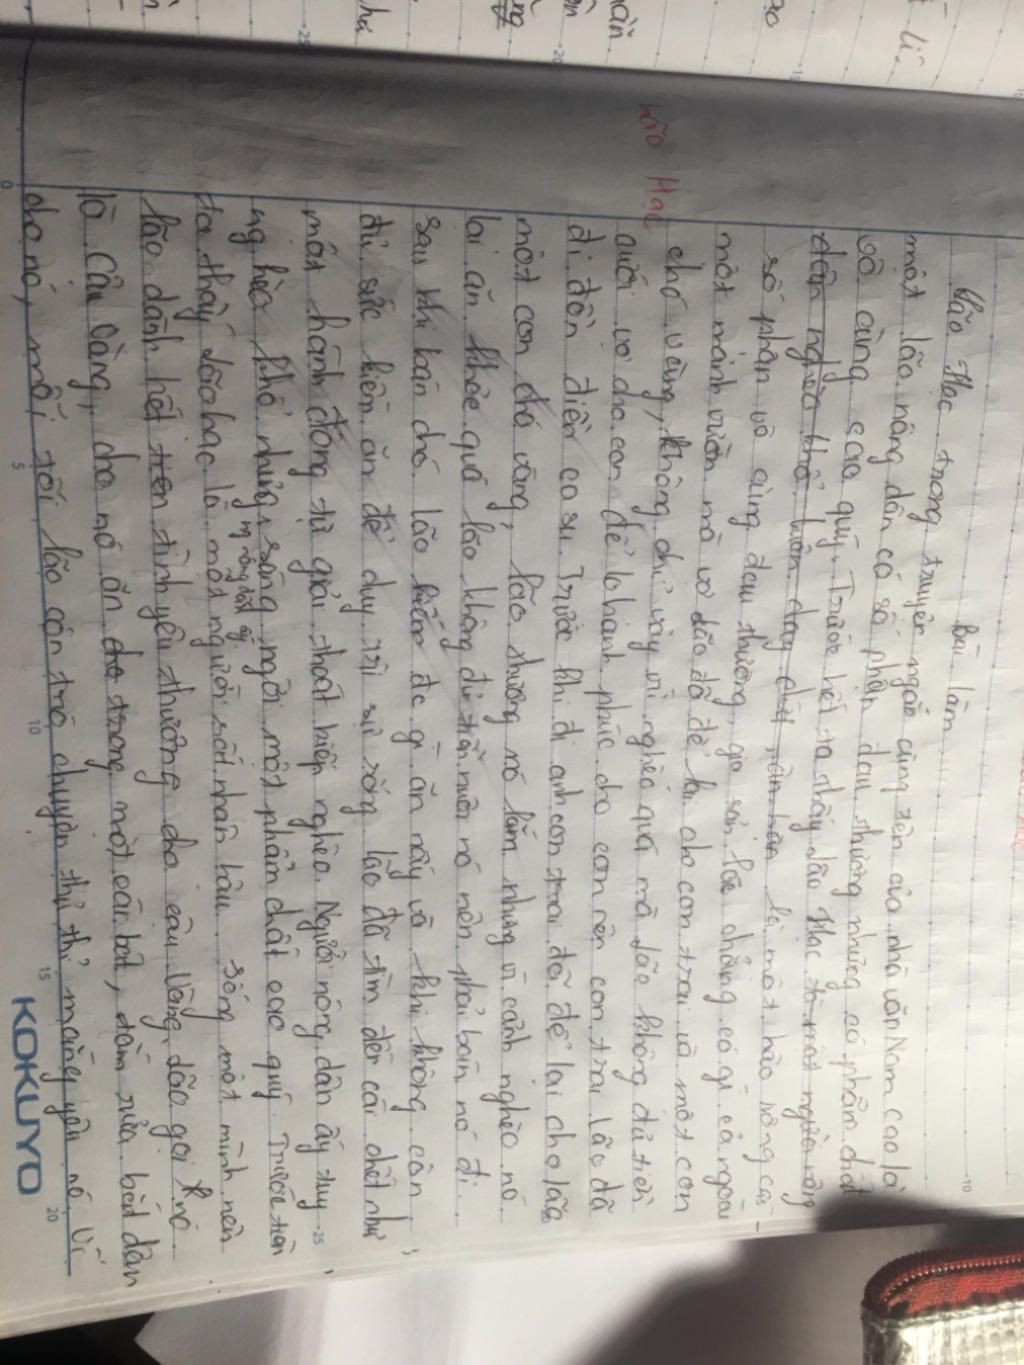 Bài làm
Lão Hạc trong truyện ngắn cùng tên của nhà văn Nam Cao là
một lão nông dân có số phận đau thương nhưng có phẩm chất
vô cùng cao quý. Trước hết ta thấy Lão Hạc là một người nông
dân nghèo khổ
số phận vô cùng đau thương, gia sản lão chẳng có gì cả ngoài
một mảnh vườn mà vợ lão đã để lại cho con trai và một con
chó vàng, không chỉ vậy vì nghèo quá mà lão không đủ tiền
Lão Hạc
cưới vợ cho con để lo hạnh phúc cho con nên con trai lão đã
đi đồn điền cao su. Trước khi đi anh con trai đã để lại cho lão
một con chó vàng, lão thương nó lắm nhưng vì cảnh nghèo nó
lại ăn khỏe quá lão không đủ tiền nuôi nó nên phải bán nó đi.
sau khi bán chó lão kiếm đc gì ăn nấy và khi không còn
đủ sức kiếm ăn để duy trì sự sống lão đã tìm đến cái chết như
một hành động tự giải thoát kiếp nghèo. Người nông dân ấy tuy
nghèo khổ nhưng sáng ngời một phẩm chất cao quý. Trước tiên
ta thấy lão hạc là một người rất nhân hậu. sống một mình nên
lão dành hết tình yêu thương cho cậu Vàng, lão gọi nó
là cậu Vàng, cho nó ăn cho trong một cái bát, tắm rửa, bắt rận
cho nó, mỗi tối lão còn trò chuyện thủ thỉ mắng yêu nó. Vì
KOKUYO